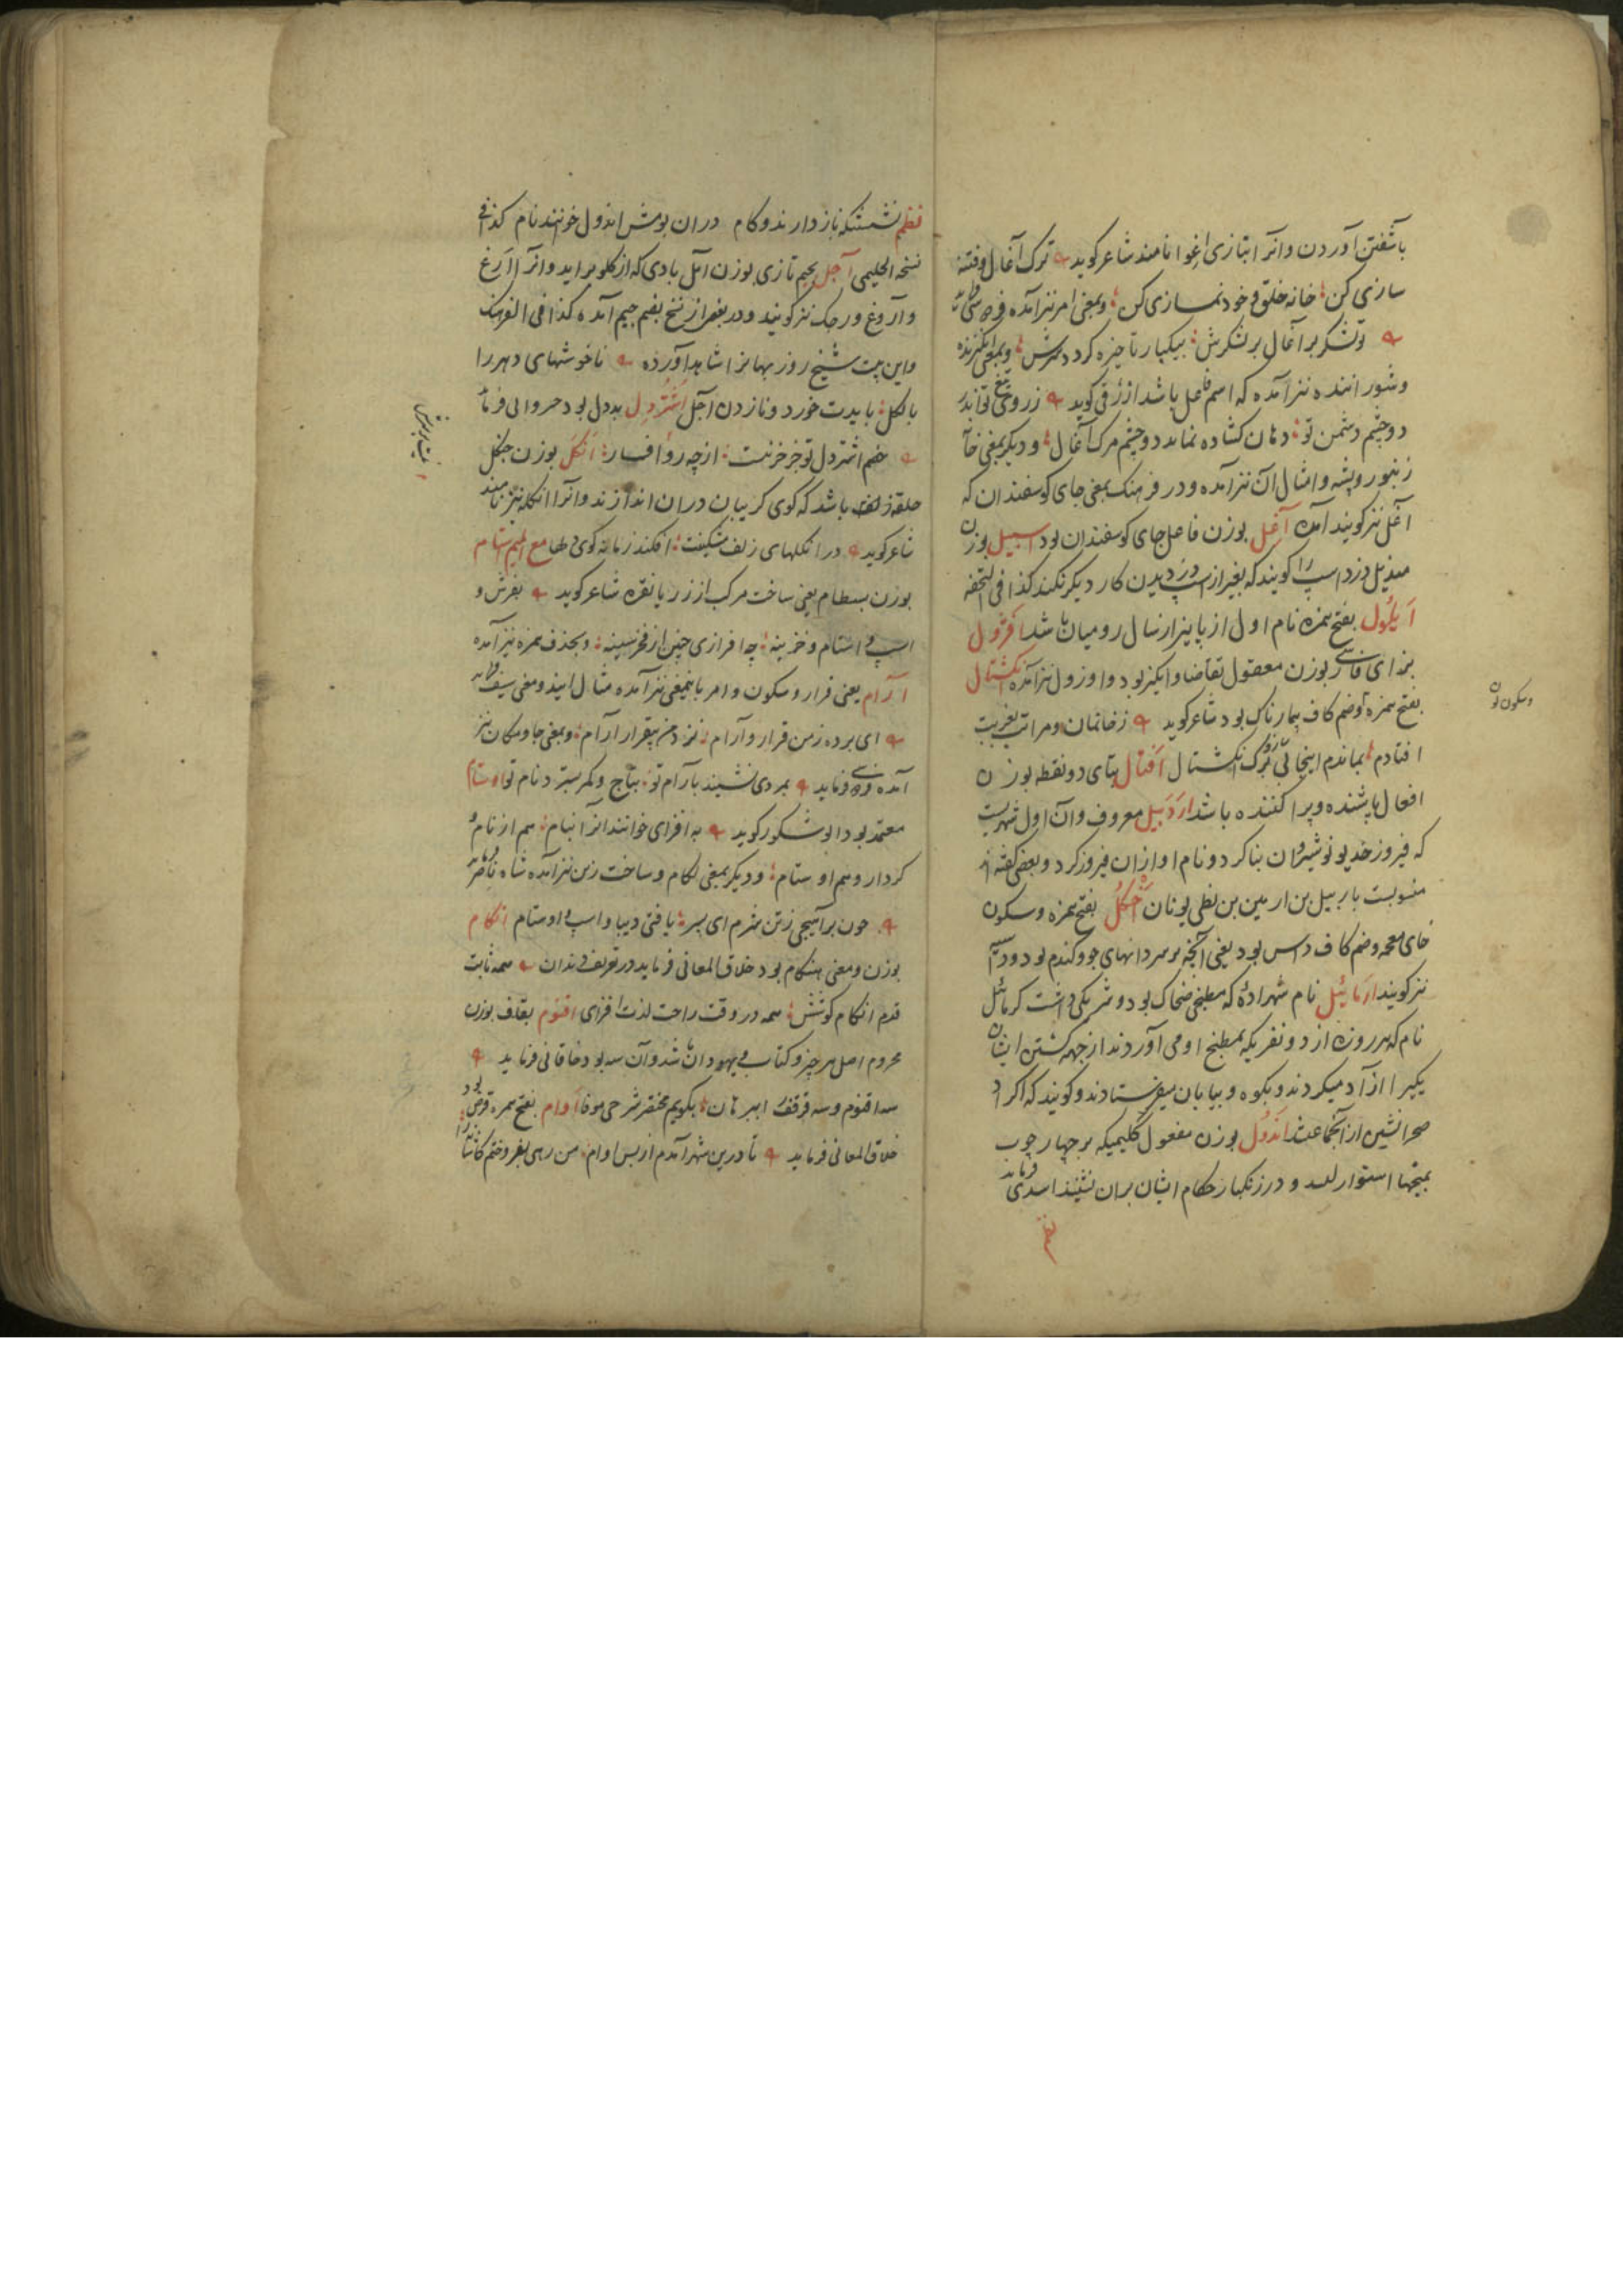 بآشفتن آوردن وانرا بتازی اغوا نامند شاعر کوید ترک آغال وفتنه
سازی کن خانه خلق و خود نمازی کن وبمعنی امر نیز آمده
تو لشکر برآغال بر لشکرش بیکبار تا خیره کردد سرش
وشوراننده نیز آمده که اسم فاعل باشد ازرقی کوید ز روی تیغ تواند
دو چشم دشمن تو دهان کشاده نماید دو چشم مرک آغال ودیکر بمعنی خانه
زنبور وپشه وامثال آن نیز آمده ودر فرهنک بمعنی جای کوسفندان که
آغل نیز کویند آمده آغل بوزن فاعل جای کوسفندان بود اسبیل بوزن
مندیل دزد اسپ را کویند که بغیر از اسپ دزدیدن کار دیکر نکند کذا فی التحفه
ایلول بفتح همزه نام اول از پاییز از سال رومیان باشد افژول
بزای فارسی بوزن معقول تقاضا وانکیز بود واوژول نیز آمده انکشتال
بفتح همزه وضم کاف بیمارناک بود شاعر کوید ز خانمان ومراتب بغربت
وسکون نون
افتادم بماندم اینجا انکشتال افتال بتای دو نقطه بوزن
افعال پاشنده وپراکننده باشد اردبیل معروف وآن اول شهریست
که فیروز جد نوشیروان بنا کرد ونام او ازان فیروز کرد وبعضی کفته اند
منسوبست باربیل بن ارمین بن نطی بن یونان اخکل بفتح همزه وسکون
خای معجمه وضم کاف داس بود یعنی آنچه بر سر دانهای جو وکندم بود
نیز کویند ارمائیل نام شهزاده که مطبخی ضحاک بود وشریکی داشت کرمائیل
نام که هر روزه از دو نفر یکه بمطبخ او می آوردند از جهه کشتن ایشان
یکیرا آزاد میکردند وبکوه وبیابان میفرستادند وکویند که اکراد
صحرانشین از آنجماعتند اندول بوزن مفعول کلیمیکه بر چهار چوب
بمیخها استوار کنند ودر زنکبار حکام ایشان بران نشینند اسدی فرماید
نظم
نظم نشستنکه ناز دارند وکام دران بومش اندول خوانند نام کذا فی
نسخه الحلیمی آجل بجیم تازی بوزن آمل بادی که از کلو براید وانرا آرغ
وآروغ ورجک نیز کویند ودر بعضی از نسخ بضم جیم آمده کذا فی الفرهنک
واین بیت شیخ روزبهانرا شاهد آورده ناخوشهای دهر را
بالکل بایدت خورد ونازدن آجل اشتردل بددل بود خسروانی فرماید
خصم اشتردل تو خر خرنست ازچه رو افسار انکل بوزن جنکل
غیاث پرش
حلقه باشد که کوی کریبان دران اندازند وانرا انکله نیز نامند
شاعر کوید در انکلهای زلف مشکینت افکند زمانه کوی دلها مع المیم استام
بوزن بسطام یعنی ساخت مرکب از زر یا نقره شاعر کوید بفرش و
اسپ واستام وخزینه چه افرازی چنین از فخر سینه وبحذف همزه نیز آمده
آرام یعنی قرار وسکون وامر باینمعنی نیز آمده مثال ایندو معنی
ای برده ز من قرار وآرام نزد من بیقرار آرام وبمعنی جا ومکان نیز
آمده فردوسی فرماید بمردی نشیند بآرام تو بتاج وکمر بسترد نام تو اوستام
معتمد بود ابوشکور کوید به افزای خوانند انرا بنام هم از نام و
کردار وهم اوستام ودیکر بمعنی لکام وساخت زین نیز آمده شاه ناصر
چون برآهیجی ز تن شرم ای پسر یافتی دیبا واسپ واوستام انکام
بوزن ومعنی هنکام بود خلاق المعانی فرماید در تعریف دندان همه ثابت
قدم انکام کوشش همه در وقت راحت لذت افزای اقنوم بقاف بوزن
محروم اصل هر چیز وکتاب یهودان باشد وآن سه بود خاقانی فرماید
سه اقنوم وسه قرقف را ببرهان بکویم مختصر شرح موفا اوام بفتح همزه قرض بود
خلاق المعانی فرماید تا درین شهر آمدم از بس اوام من رهی بفروختم کاشانه را